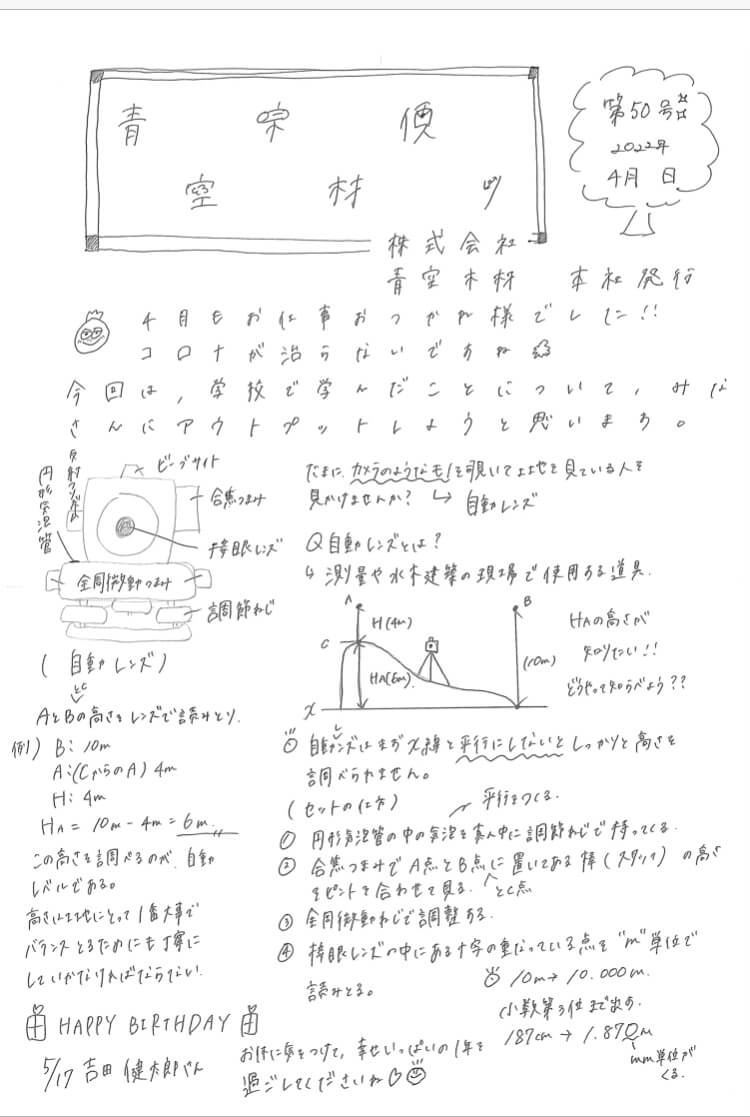 青 空 木材 便り
第50号
2022年
4月 日
株式会社
青空木材 本社発行
4月もお仕事おつかれ様でした!!
コロナが治らないですね
今回は、学校で学んだことについて、みな
さんにアウトプットしようと思います。
反射プリズム
円形気泡管
ピープサイト
合焦つまみ
接眼レンズ
全周微動つまみ
調節ねじ
(自動レンズ)
たまに、カメラのようなモノを覗いて土地を見ている人を
見かけませんか? → 自動レンズ
Q 自動レンズとは?
↳ 測量や土木建築の現場で使用する道具.
A
H(4m)
C
HA(6m)
X
B
(10m)
HAの高さが
知りたい!!
どうやって知らべよう??
とC
AとBの高さをレンズで読みとり.
例) B: 10m
A:(CからのA) 4m
H: 4m
HA = 10m - 4m = 6m.
この高さを調べるのが、自動
レベルである。
高さは土地にとって1番大事で
バランスとるためにも丁寧に
していかなければならない.
自動レンズはまずX線と平行にしないとしっかりと高さを
調べられません。
(セットの仕方)
平行をつくる.
① 円形気泡管の中の気泡を真ん中に調節ねじで持ってくる.
② 合焦つまみでA点とB点に置いてある棒(スタッフ)の高さ
をピントを合わせて見る. とC点
③ 全周微動ねじで調整する.
④ 接眼レンズの中にある十字の重なっている点を"m"単位で
読みとる。
10m → 10.000m.
小数第3位まで出す.
187cm → 1.870m
mm単位が
くる.
HAPPY BIRTHDAY
5/17 吉田 健太郎くん
お体に気をつけて、幸せいっぱいの1年を
過ごしてくださいね